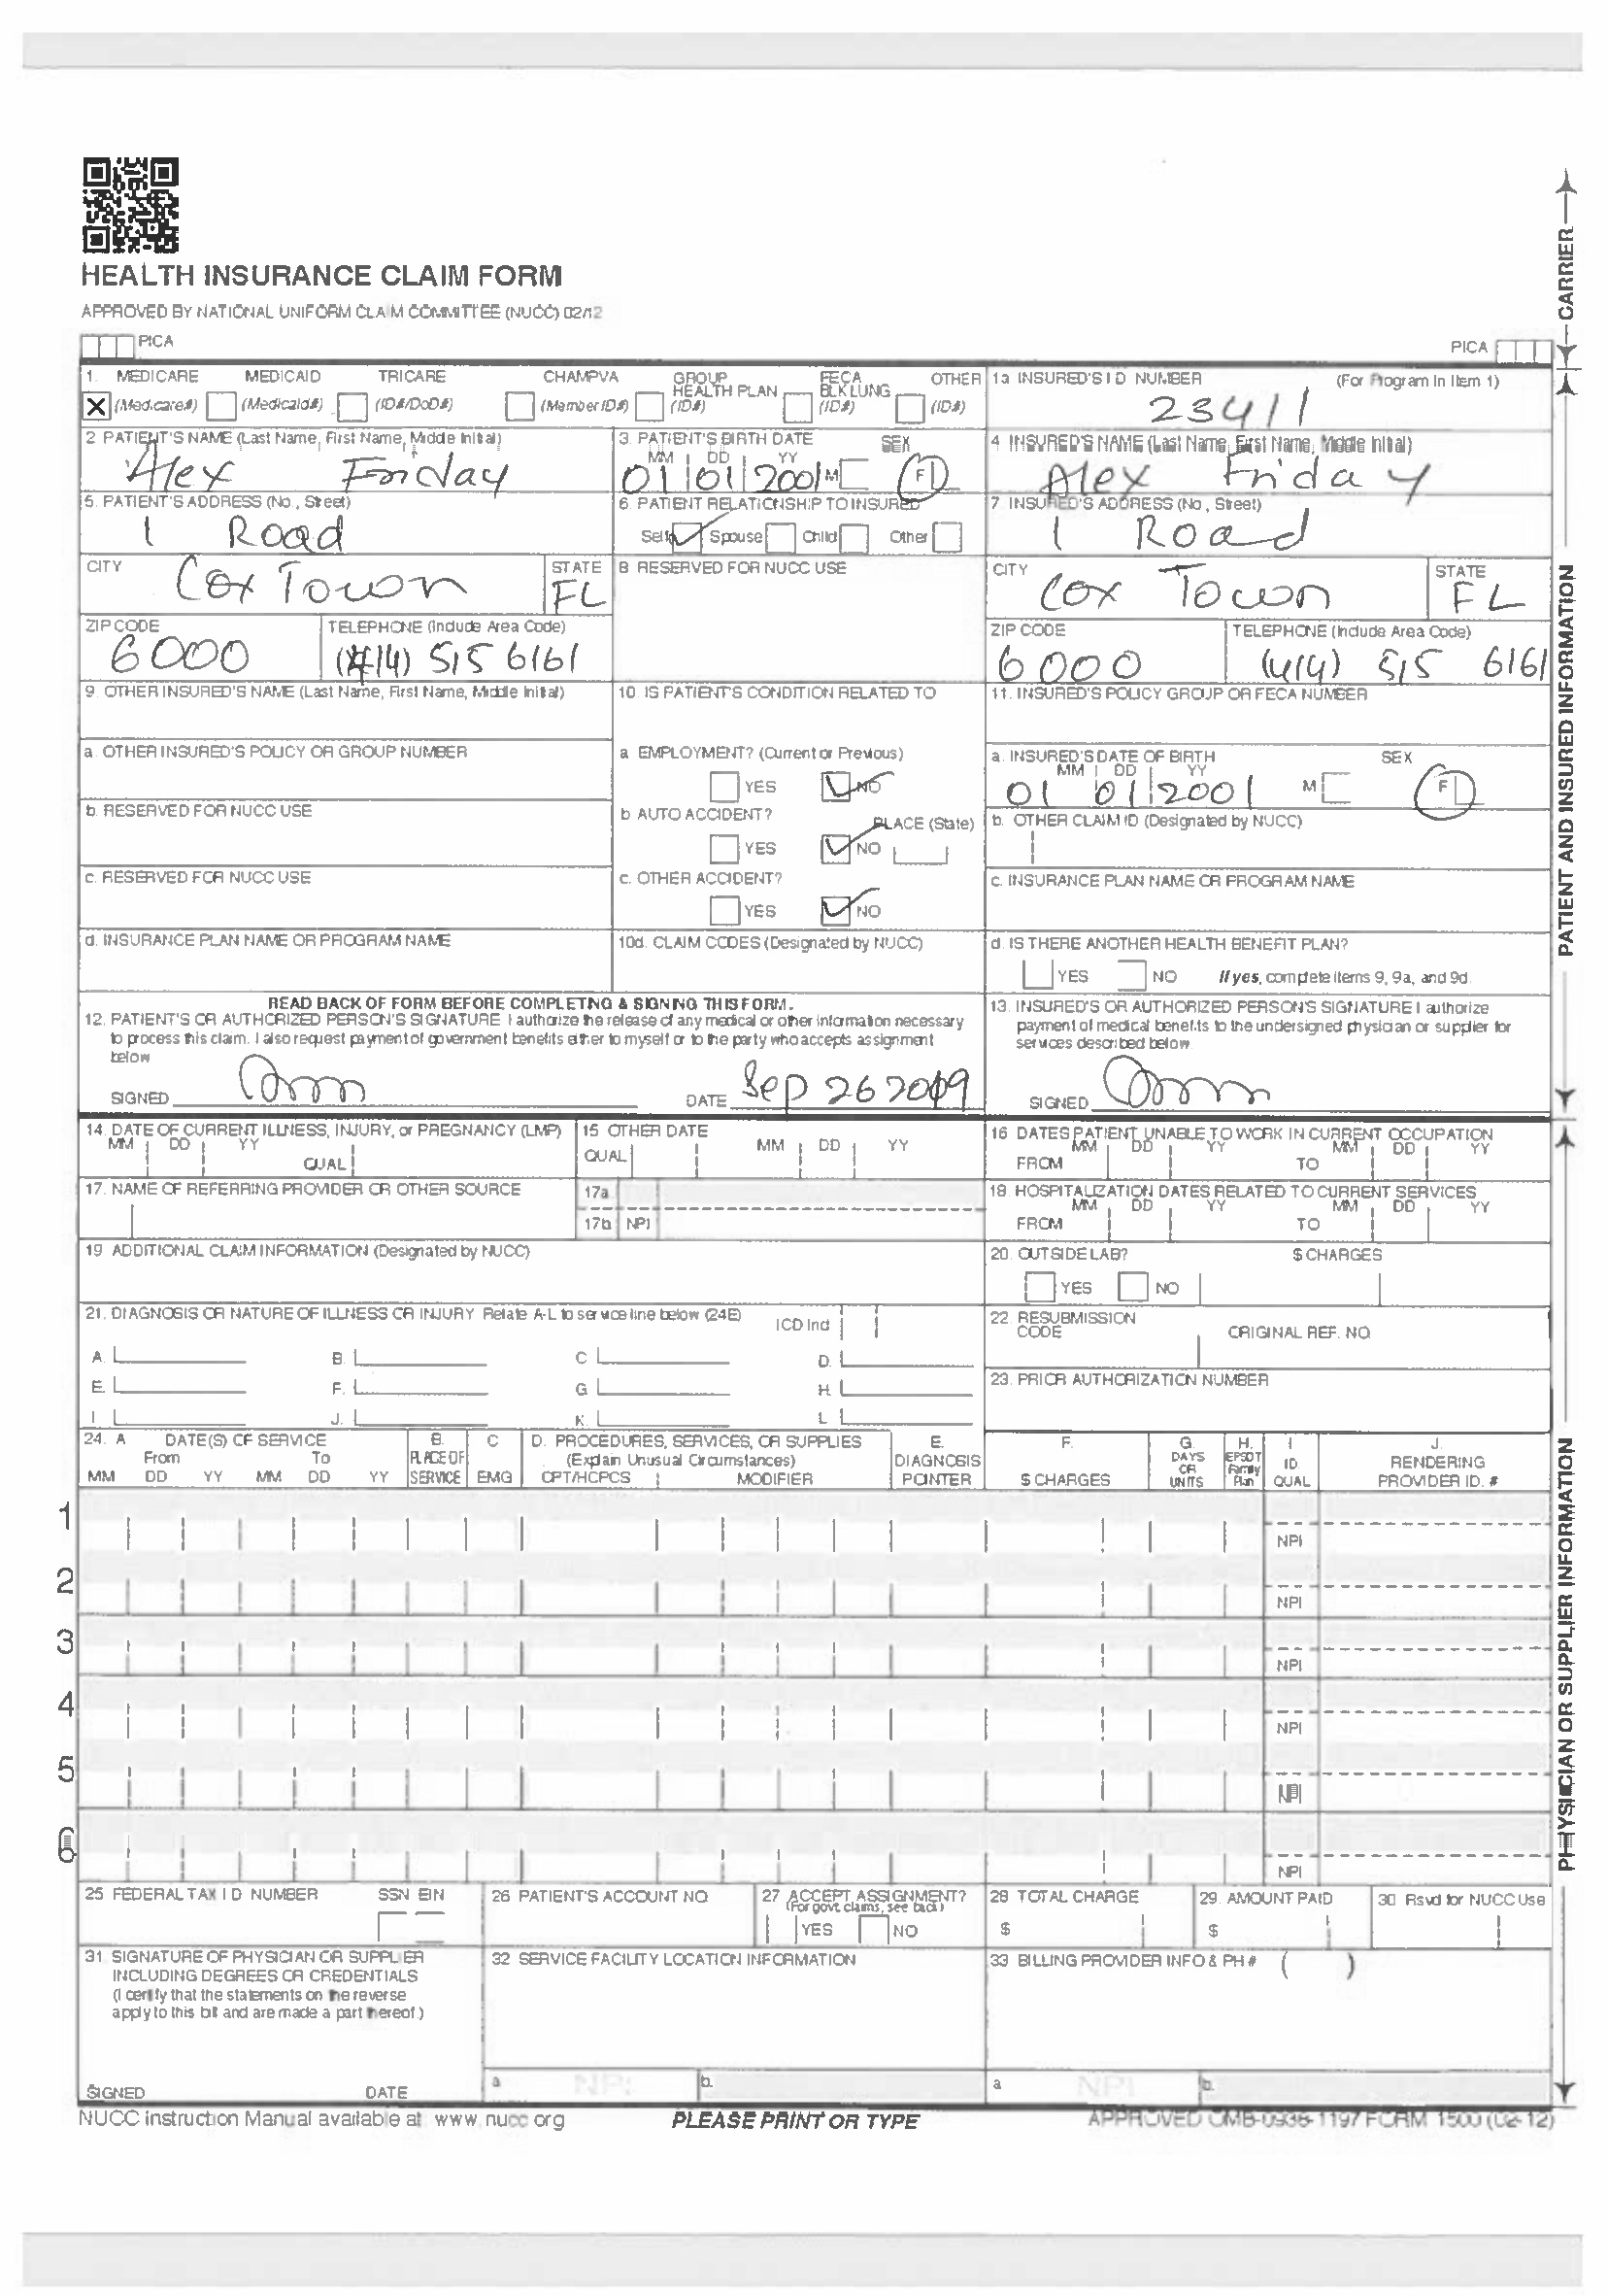 HEALTH INSURANCE CLAIM FORM
APPROVED BY NATIONAL UNIFORM CLAIM COMMITTEE (NUCC) 02/12
PICA
PICA
CARRIER
1. MEDICARE MEDICAID TRICARE CHAMPVA GROUP HEALTH PLAN FECA BLK LUNG OTHER
(Medicare#) (Medicaid#) (ID#/DoD#) (Member ID#) (ID#) (ID#) (ID#)
1a INSURED'S I D NUMBER (For Program In Item 1)
23411
2 PATIENT'S NAME (Last Name, First Name, Middle Initial)
Alex Friday
3. PATIENT'S BIRTH DATE SEX
MM DD YY
01 01 2001 M F
4 INSURED'S NAME (Last Name, First Name, Middle Initial)
Alex Friday
5. PATIENT'S ADDRESS (No., Street)
1 Road
6. PATIENT RELATIONSHIP TO INSURED
Self Spouse Child Other
7. INSURED'S ADDRESS (No, Street)
1 Road
CITY STATE
Cox Town FL
8 RESERVED FOR NUCC USE
CITY STATE
Cox Town FL
ZIP CODE TELEPHONE (Include Area Code)
6000 (414) 515 6161
ZIP CODE TELEPHONE (Include Area Code)
6000 (414) 515 6161
9. OTHER INSURED'S NAME (Last Name, First Name, Middle Initial)
10 IS PATIENT'S CONDITION RELATED TO
11. INSURED'S POLICY GROUP OR FECA NUMBER
a. OTHER INSURED'S POLICY OR GROUP NUMBER
a EMPLOYMENT? (Current or Previous)
YES NO
a. INSURED'S DATE OF BIRTH SEX
MM DD YY
01 01 2001 M F
b. RESERVED FOR NUCC USE
b AUTO ACCIDENT? PLACE (State)
YES NO
b. OTHER CLAIM ID (Designated by NUCC)
c. RESERVED FOR NUCC USE
c. OTHER ACCIDENT?
YES NO
c. INSURANCE PLAN NAME OR PROGRAM NAME
d. INSURANCE PLAN NAME OR PROGRAM NAME
10d. CLAIM CODES (Designated by NUCC)
d. IS THERE ANOTHER HEALTH BENEFIT PLAN?
YES NO If yes, complete items 9, 9a, and 9d.
PATIENT AND INSURED INFORMATION
READ BACK OF FORM BEFORE COMPLETING & SIGNING THIS FORM.
12. PATIENT'S OR AUTHORIZED PERSON'S SIGNATURE I authorize the release of any medical or other information necessary
to process this claim. I also request payment of government benefits either to myself or to the party who accepts assignment
below
SIGNED DATE Sep 26 2019
13. INSURED'S OR AUTHORIZED PERSON'S SIGNATURE I authorize
payment of medical benefits to the undersigned physician or supplier for
services described below.
SIGNED
14. DATE OF CURRENT ILLNESS, INJURY, or PREGNANCY (LMP)
MM DD YY
QUAL
15 OTHER DATE
QUAL MM DD YY
16 DATES PATIENT UNABLE TO WORK IN CURRENT OCCUPATION
MM DD YY MM DD YY
FROM TO
17. NAME OF REFERRING PROVIDER OR OTHER SOURCE
17a
17b NPI
18. HOSPITALIZATION DATES RELATED TO CURRENT SERVICES
MM DD YY MM DD YY
FROM TO
19 ADDITIONAL CLAIM INFORMATION (Designated by NUCC)
20. OUTSIDE LAB? $ CHARGES
YES NO
21. DIAGNOSIS OR NATURE OF ILLNESS OR INJURY Relate A-L to service line below (24E)
ICD Ind
A. B. C D.
E. F. G H.
I. J. K. L
22. RESUBMISSION
CODE ORIGINAL REF. NO
23. PRIOR AUTHORIZATION NUMBER
24. A DATE(S) OF SERVICE
From To
MM DD YY MM DD YY
B.
PLACE OF
SERVICE
C
EMG
D. PROCEDURES, SERVICES, OR SUPPLIES
(Explain Unusual Circumstances)
CPT/HCPCS MODIFIER
E.
DIAGNOSIS
POINTER
F.
$ CHARGES
G.
DAYS
OR
UNITS
H.
EPSDT
Family
Plan
I
ID.
QUAL
J.
RENDERING
PROVIDER ID. #
1 NPI
2 NPI
3 NPI
4 NPI
5 NPI
6 NPI
PHYSICIAN OR SUPPLIER INFORMATION
25 FEDERAL TAX I D NUMBER SSN EIN
26 PATIENT'S ACCOUNT NO
27 ACCEPT ASSIGNMENT?
(For govt. claims, see back)
YES NO
28 TOTAL CHARGE
$
29. AMOUNT PAID
$
30 Rsvd for NUCC Use
31 SIGNATURE OF PHYSICIAN OR SUPPLIER
INCLUDING DEGREES OR CREDENTIALS
(I certify that the statements on the reverse
apply to this bill and are made a part thereof.)
SIGNED DATE
32 SERVICE FACILITY LOCATION INFORMATION
a NPI b.
33 BILLING PROVIDER INFO & PH # ( )
a NPI b.
NUCC Instruction Manual available at www.nucc.org
PLEASE PRINT OR TYPE
APPROVED OMB-0938-1197 FORM 1500 (02-12)